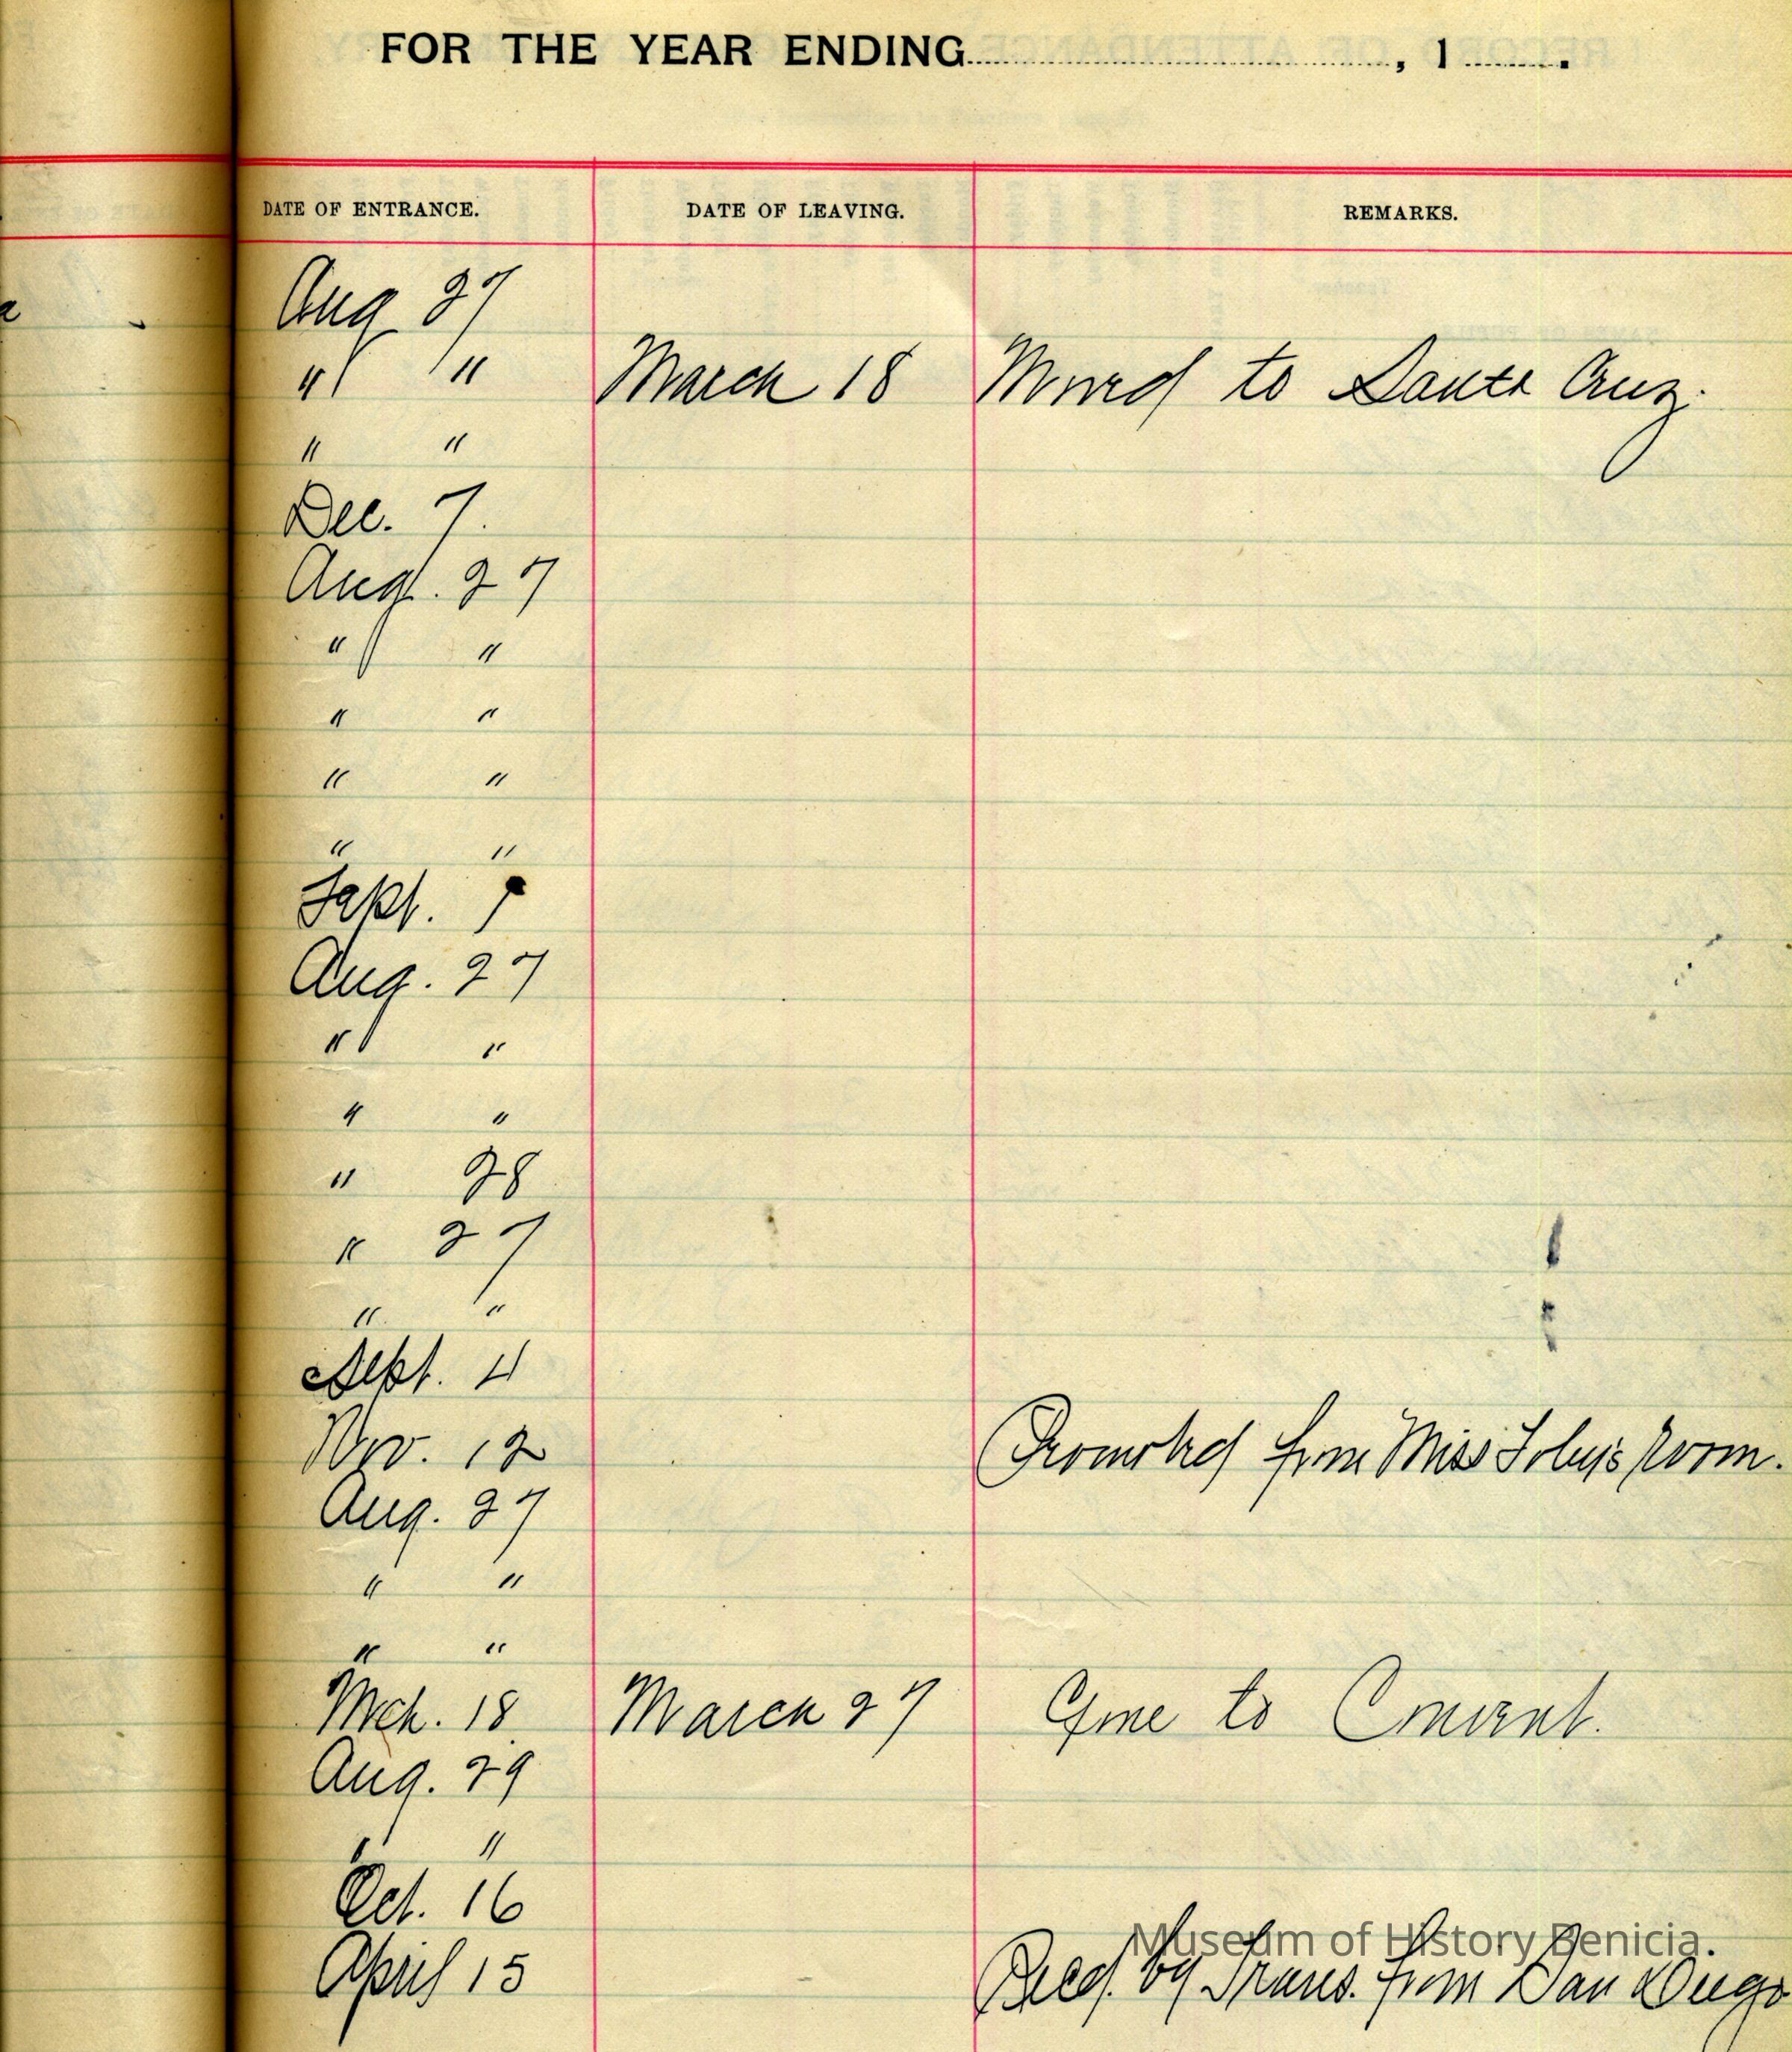 FOR THE YEAR ENDING, 1 .
DATE OF ENTRANCE. DATE OF LEAVING. REMARKS.
Aug 27
" " March 18 Moved to Santa Cruz.
" "
Dec. 7.
Aug. 27
" "
" "
" "
" "
Sept.
Aug. 27
" "
" "
" 28
" 27
" "
Sept. 4
Nov. 12 Promoted from Miss Room.
Aug. 27
" "
" "
Mch. 18 March 27 Gone to Convent.
Aug. 29
" "
Oct. 16
Museum of History Benicia.
April 15 Recd. by Trans. from San Diego